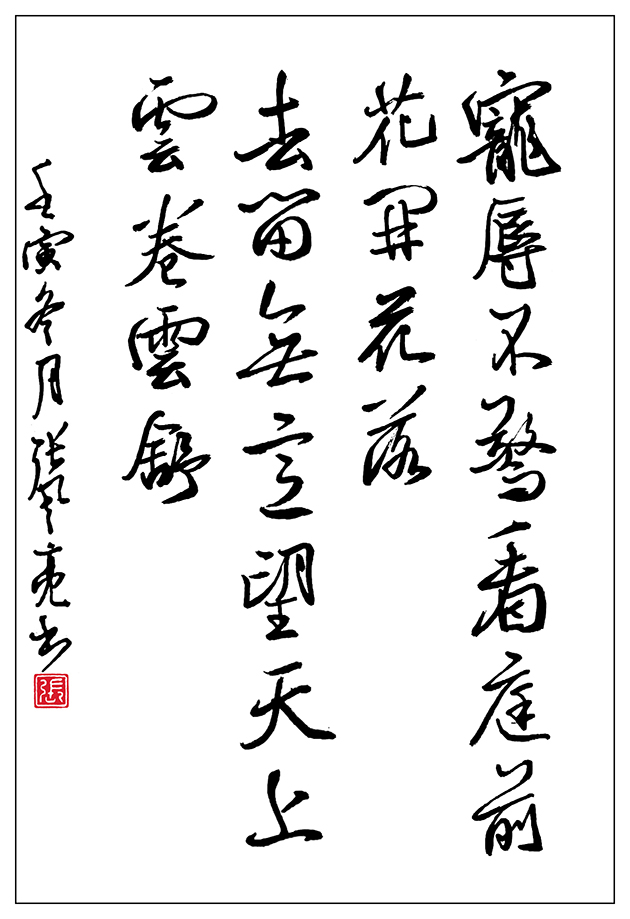 寵辱不驚看庭前
花開花落
去留無意望天上
雲卷雲舒
壬寅冬月張亮书
張